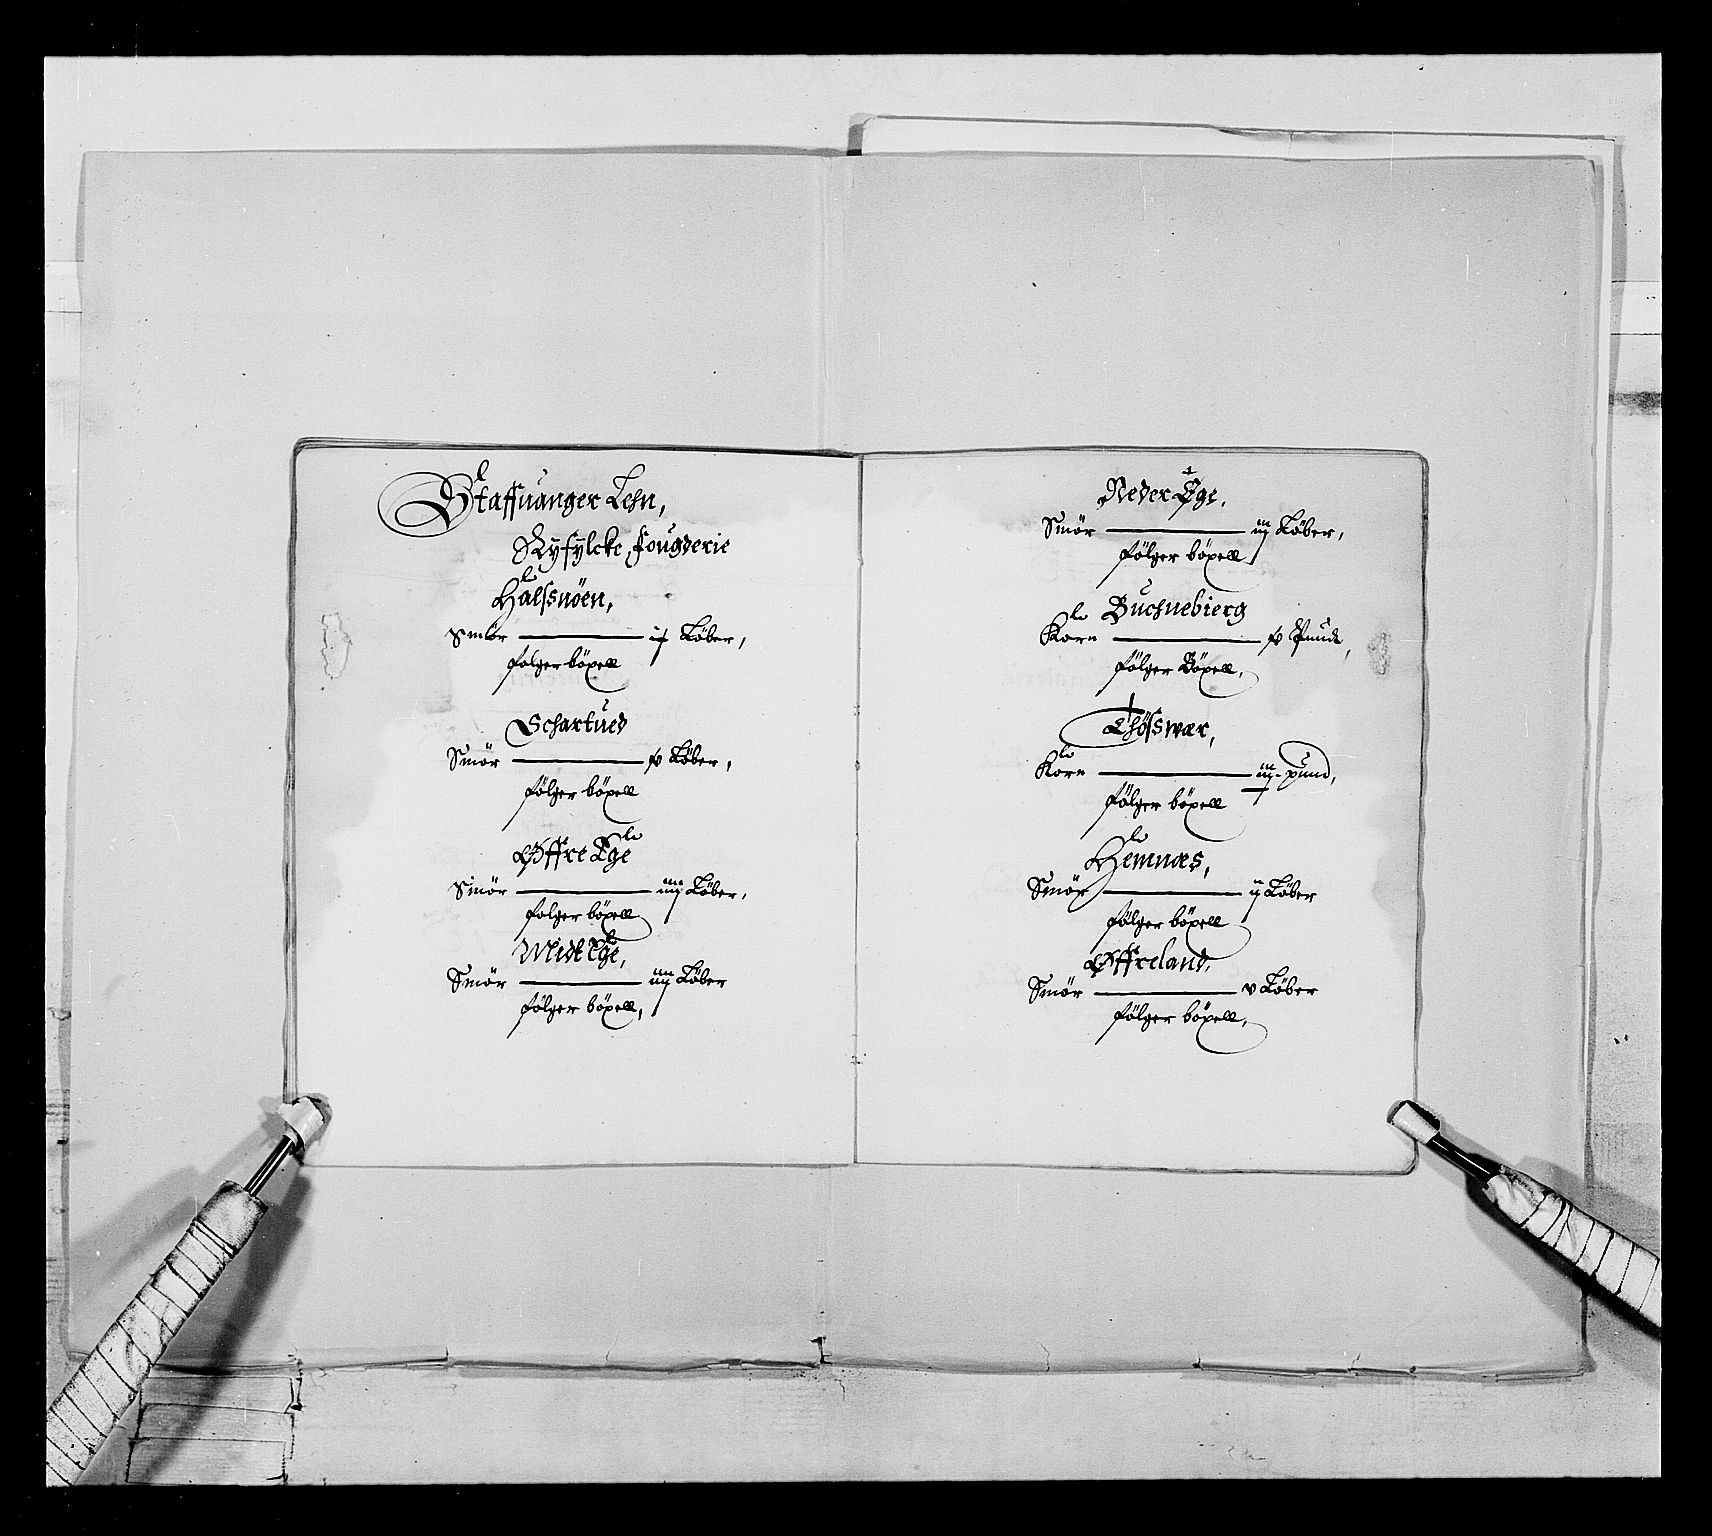 Staffuanger Lehn,
Ryfylcke, fougderie
Halssnöen,
Smör ij Løber,
følger böxell
Schartued
Smör Løber,
følger böxell
Øffre Ege
Smör iiij Løber,
følger böxell
Midt Ege,
Smör iiij Løber
følger böxell,
Neder Ege,
Smör iij Løber,
følger böxell
Buchnebierg
Korn Pund,
følger Böxell,
Korn iij pund,
følger böxell
Hemnæs,
Smör ij Løber
følger böxell
Øffreland,
Smör v Løber
følger böxell,